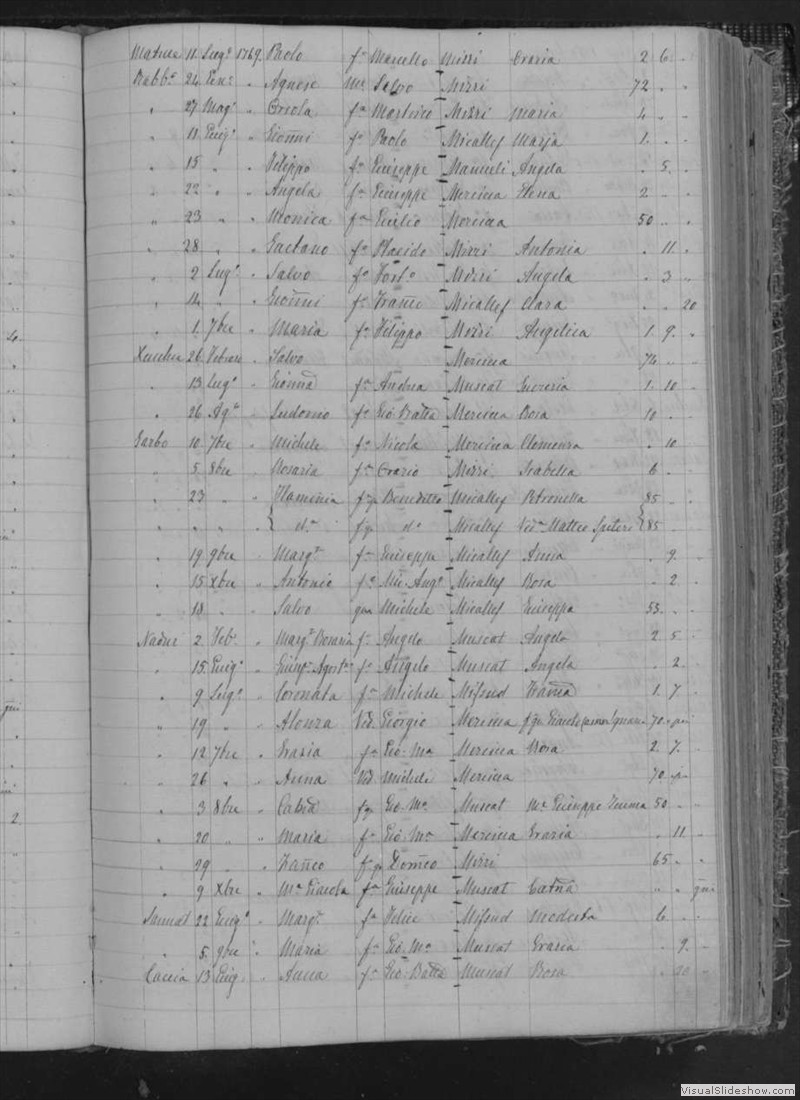 Matrice 11 Lug.o 1769. Paolo f.o Marcello Mizzi Grazia 2 6 "
Rabb.o 24 Gen.o " Agnese M.e Salvo Mizzi 72 " "
" 27 Mag.o " Orsola f.a Martino Mizzi Maria 4 " "
" 11 Giug.o " Gionni f.o Paolo Micallef Maria 1 " "
" 15 " " Filippo f.o Giuseppe Mamuli Angela " 5 "
" 22 " " Angela f.a Giuseppe Mercieca Elena 2 " "
" 23 " " Monica f.a Emilio Mercieca 50 " "
" 28 " " Gaetano f.o Placido Mizzi Antonia " 11 "
" 2 Lug.o " Salvo f.o Fort.o Mizzi Angela " 3 "
" 14 " " Gionni f.o Franc Micallef Clara " " 20
" 1 7bre " Maria f.a Filippo Mizzi Angelica 1 9 "
Xeuchia 26 Febraro " Salvo Mercieca 74 " "
" 13 Lug.o " f.a Andrea Muscat 1 10 "
" 26 Ag.o " Ludovico f.o Gio Batta Mercieca Rosa 10 " "
Garbo 10 7bre " Michele f.o Nicola Mercieca Clemenza " 10
" 5 8bre " Rosaria f.a Orazio Mizzi Isabella 6 "
" 23 " " Flaminia f.q Benedetto Micallef Petronella 85 "
" " " " d.a f.q d.o Micallef Ved.a Matteo Spiteri 85 "
" 19 9bre " Marg.a f.a Giuseppe Micallef Anna " 9 "
" 15 Xbre " Antonio f.o Mic. Ang.o Micallef Rosa " 2 "
" 18 " " Salvo qm Michele Micallef Giuseppa 53 " "
Nadur 2 Feb.o " Marg.a Rosaria f.a Angelo Muscat Angela 2 5 "
" 15 Giug.o " Gius.e Agost.o f.o Angelo Muscat Angela " 2 "
" 9 Lug.o " Coronata f.a Michele Mifsud 1 7 "
" 19 " " Alonza Ved. Giorgio Mercieca 70
" 12 7bre " Grazia f.a Gio. M.a Mercieca Rosa 2 7 "
" 26 " " Anna Ved. Michele Mercieca 70
" 3 8bre " f.q Gio. M.a Muscat M.e Giuseppe 50 "
" 20 " " Maria f.a Gio. M.a Mercieca Grazia " 11 "
" 29 " " f.q Dom.co Mizzi 65 " "
" 9 Xbre " M.a f.a Giuseppe Muscat " "
Sannat 22 Giug.o " Marg.a f.a Felice Mifsud Modesta 6 " "
" 5 9bre " Maria f.a Gio. M.a Muscat Grazia " 9 "
Caccia 13 Giug. Anna f.a Gio Batta Muscat Rosa " 20
VisualSlideshow.com